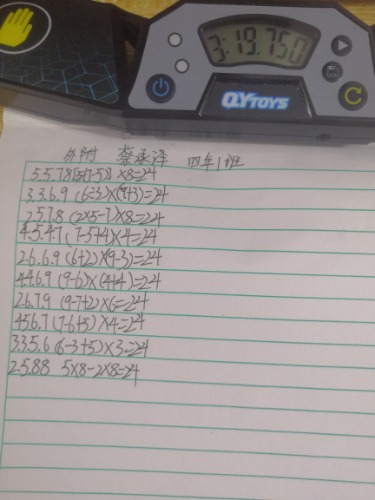 3:19.750
QYTOYS
外附 蔡承泽 四年1班
5.5.7.8 [5-(7-5)]×8=24
3.3.6.9 (6-3)×(9+3)=24
2.5.7.8 (2×5-7)×8=24
4.5.4.7 (7-5+4)×4=24
2.6.6.9 (6+2)×(9-3)=24
4.4.6.9 (9-6)×(4+4)=24
2.6.7.9 (9-7+2)×6=24
4.5.6.7 (7-6+5)×4=24
3.3.5.6 (6-3+5)×3=24
2.5.8.8 5×8-2×8=24